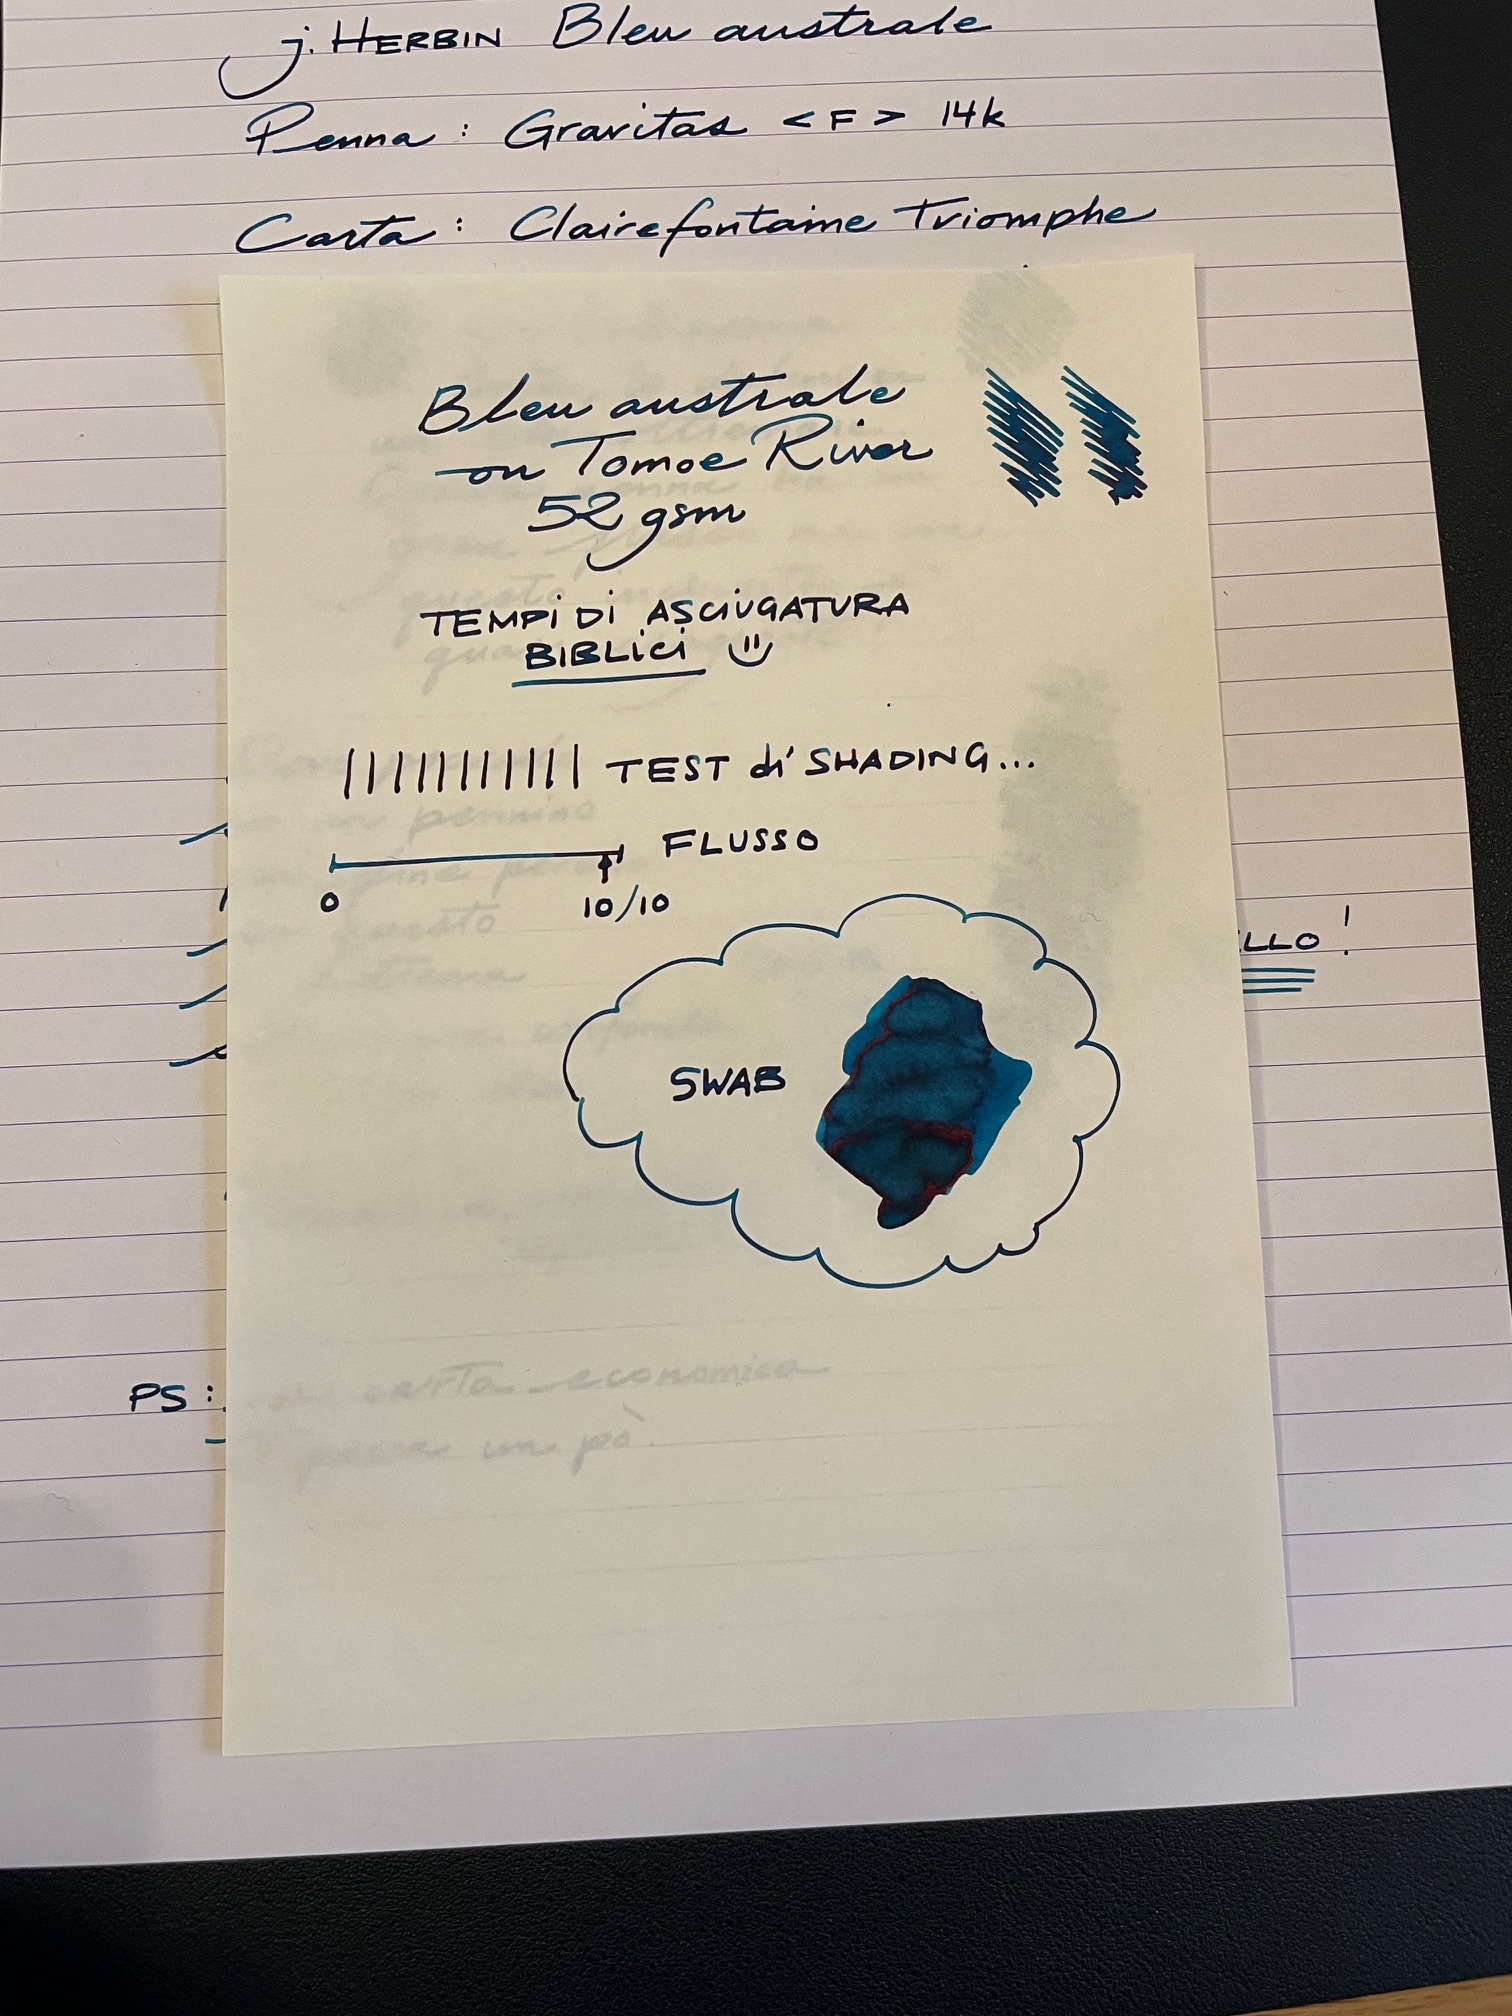 j. HERBIN Bleu australe
Penna : Gravitas < F > 14k
Carta : Clairefontaine Triomphe
Bleu australe
on Tomoe River
52 gsm
TEMPI DI ASCIUGATURA
BIBLICI
TEST di SHADING...
FLUSSO
0 10/10
LLO !
SWAB
PS :
carta economica
un pò